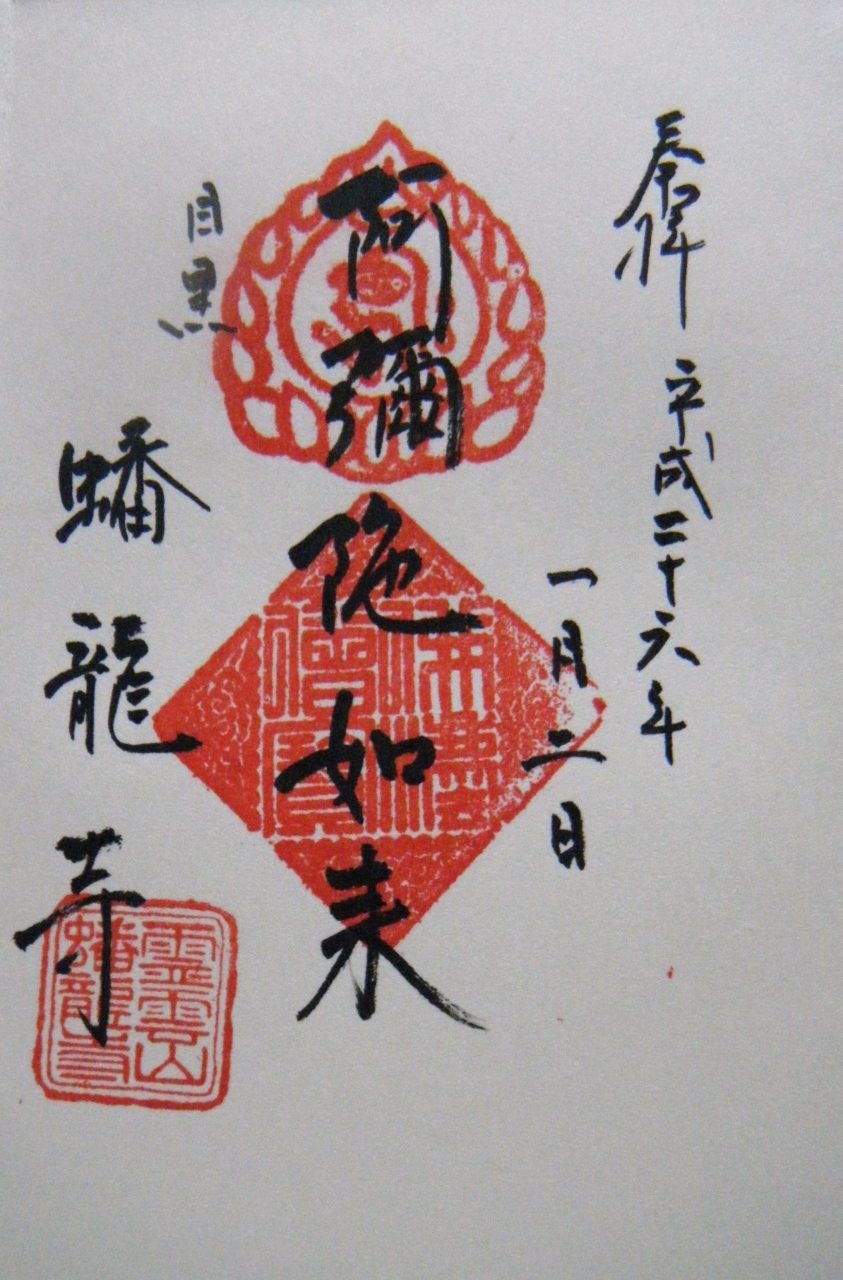 奉拝
平成二十六年
一月二日
阿彌陀如来
目黒
蟠龍寺
佛法僧寳
霊雲山
蟠龍寺